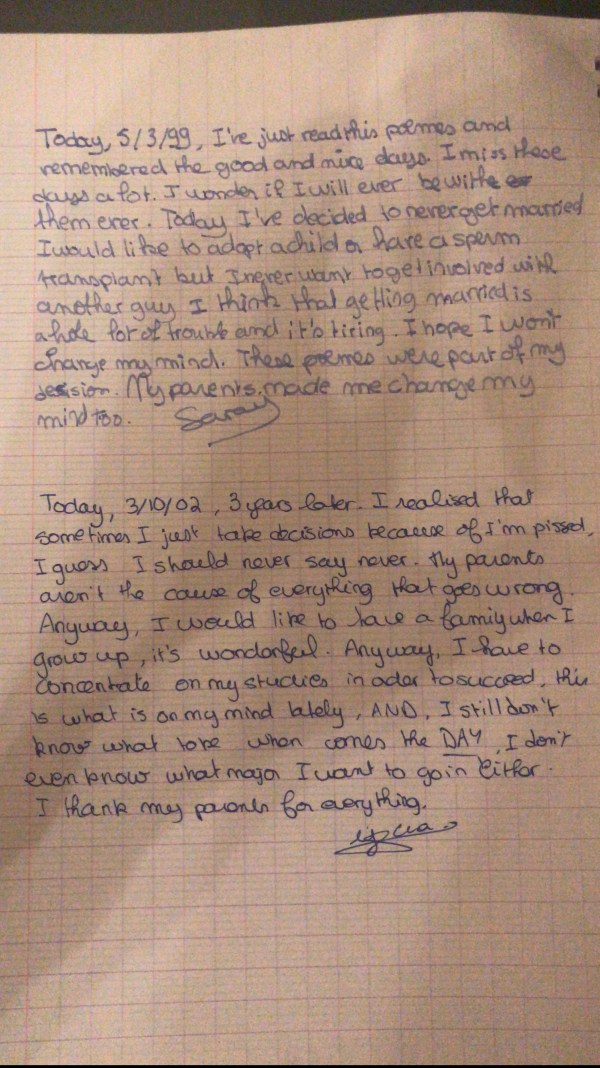 Today, 5/3/99, I've just read this poemes and
remembered the good and nice days. I miss these
days a lot. I wonder if I will ever be with
them ever. Today I've decided to never get married
I would like to adopt a child or have a sperm
transplant but I never want to get involved with
another guy I think that getting married is
a hole lot of trouble and it's tiring. I hope I won't
change my mind. These poemes were part of my
desision. My parents made me change my
mind too. Saray
Today, 3/10/02, 3 years later. I realised that
sometimes I just take decisions because of I'm pissed,
I guess I should never say never. My parents
aren't the cause of everything that goes wrong.
Anyway, I would like to have a famiy when I
grow up, it's wonderful. Anyway, I have to
concentrate on my studies in oder to succeed, this
is what is on my mind lately, AND, I still don't
know what to be when comes the DAY, I don't
even know what major I want to go in either.
I thank my parents for everything.